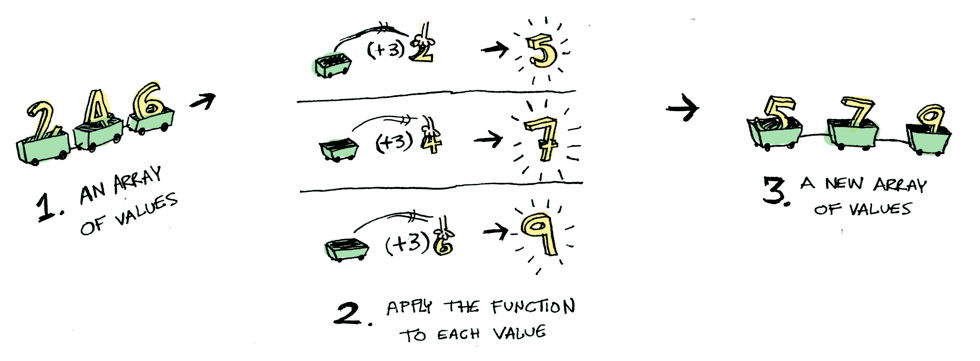 2 4 6
1. AN ARRAY
OF VALUES
(+3) 2 5
(+3) 4 7
(+3) 6 9
2. APPLY THE FUNCTION
TO EACH VALUE
5 7 9
3. A NEW ARRAY
OF VALUES